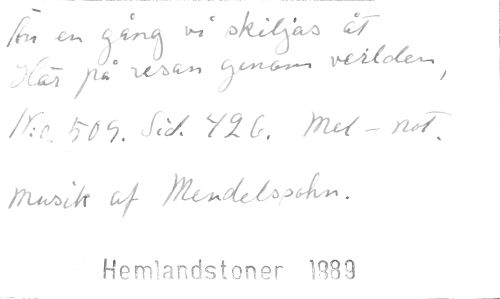 Än en gång vi skiljas åt
Här på resan genom verlden,
N:o. 509. Sid. 426. Mel-not.
Musik af Mendelssohn.
Hemlandstoner 1889